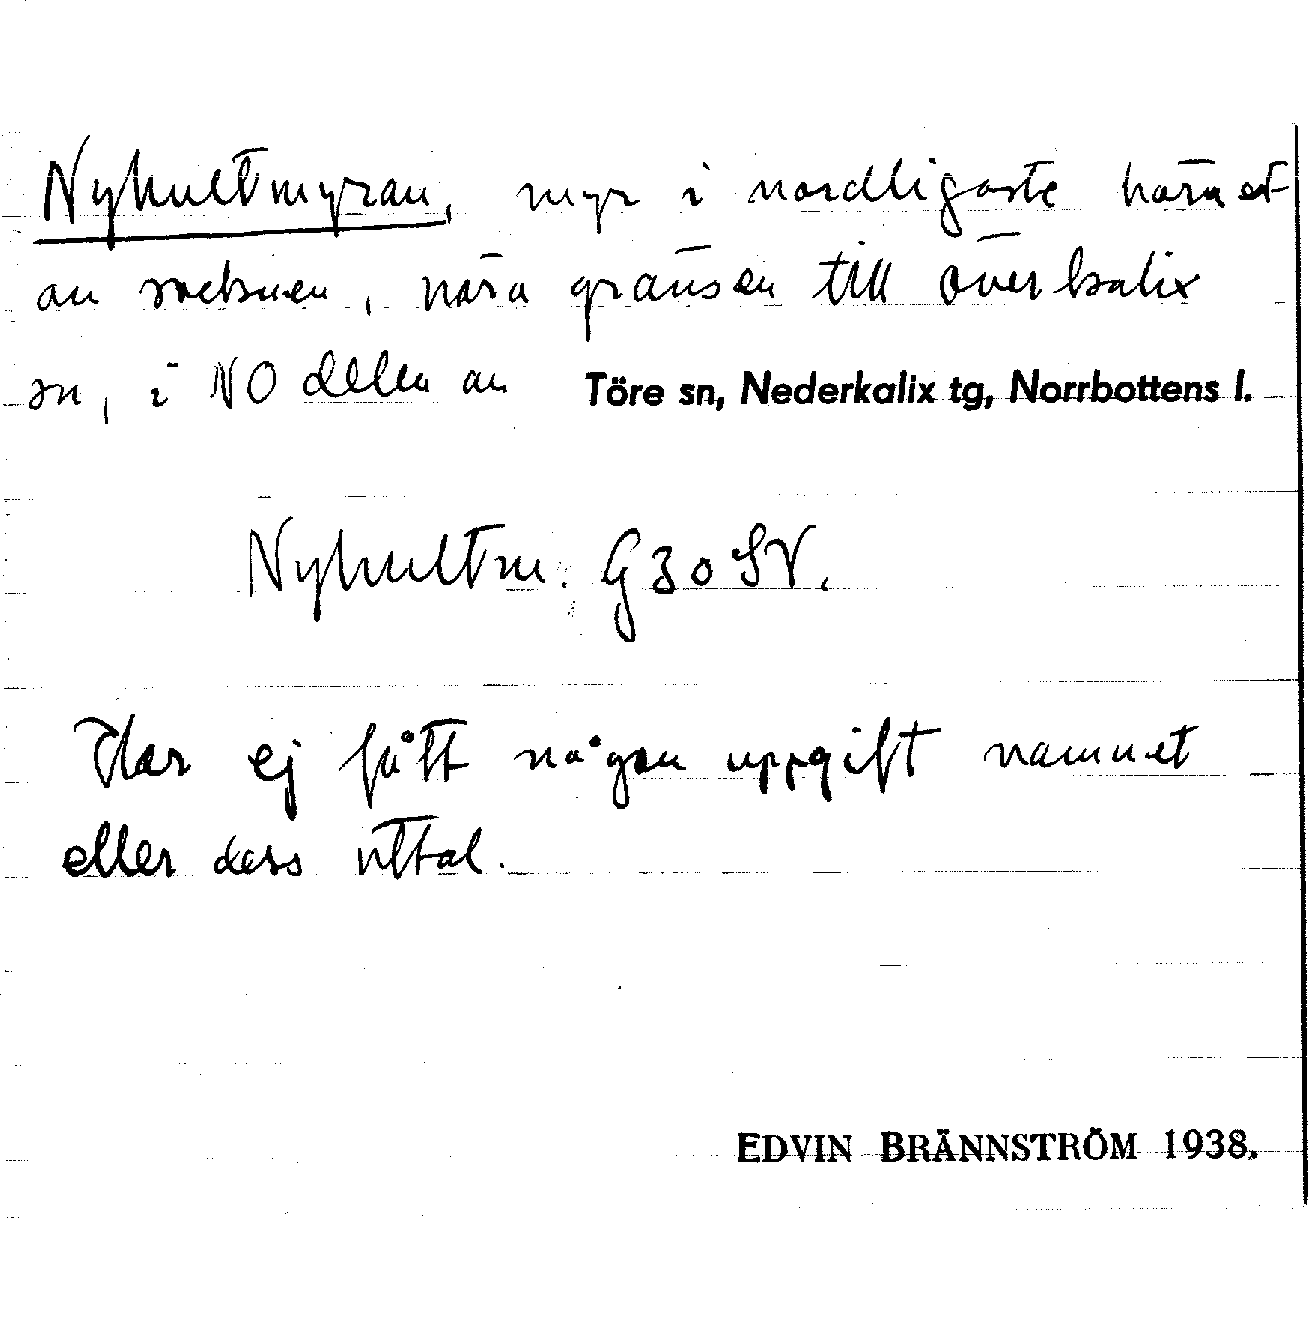 Nyhultmyran, myr i nordligaste hörnet
av socknen, nära gränsen till Överkalix
sn, i NO delen av Töre sn, Nederkalix tg, Norrbottens l.
Nyhultm. G 30 SV.
Har ej fått någon uppgift namnet
eller dess uttal.
EDVIN BRÄNNSTRÖM 1938.